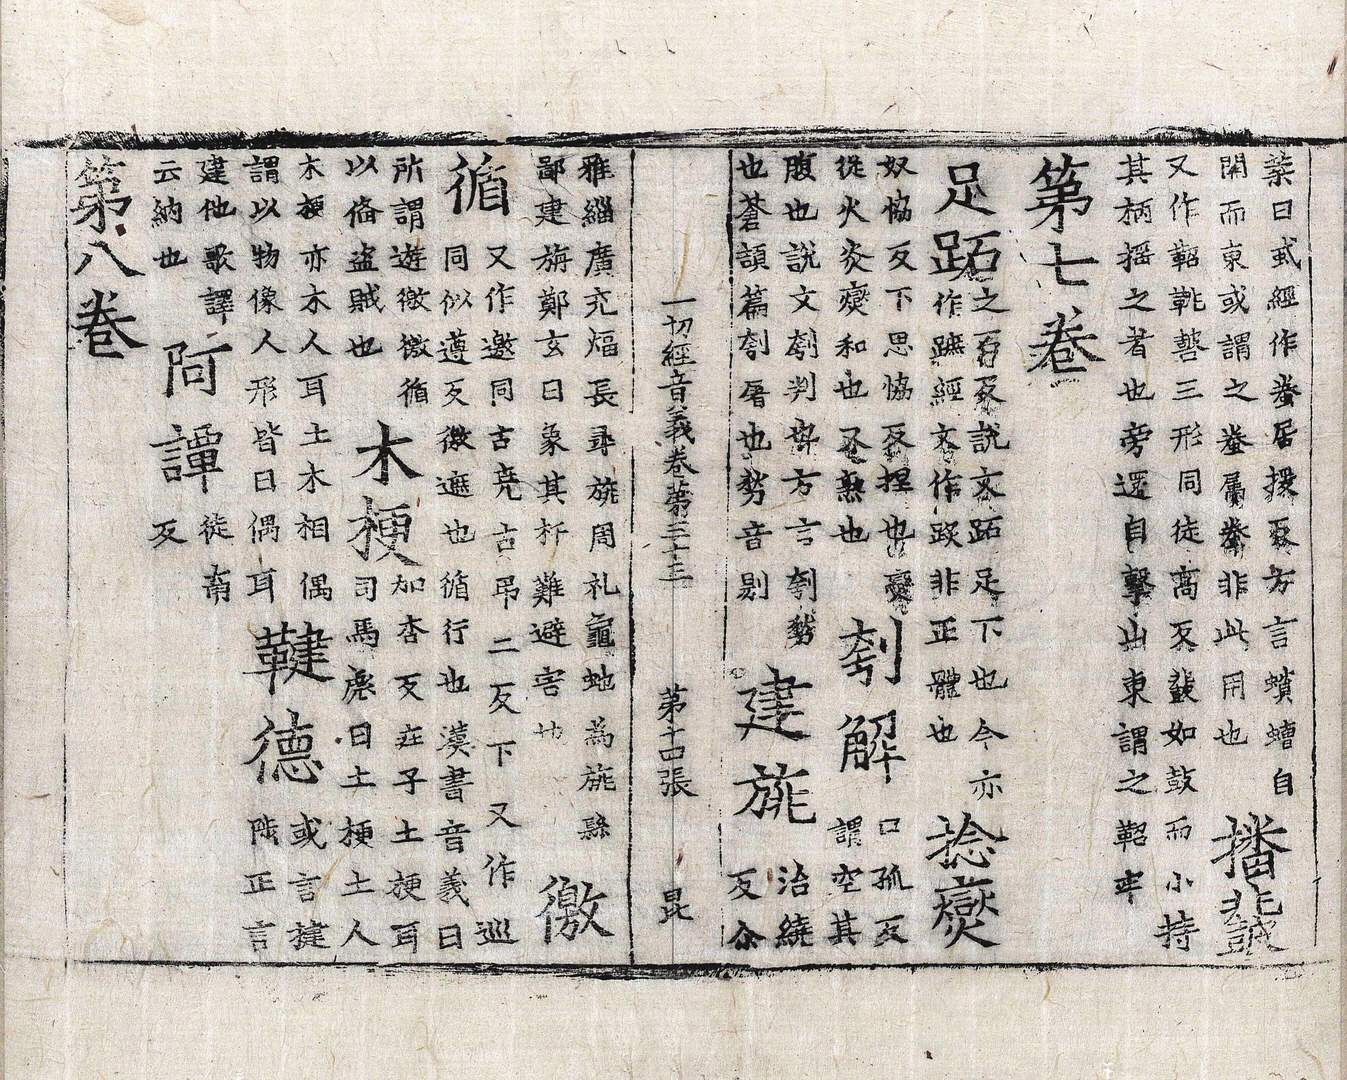 葉曰蚔經作𧎾居援反方言蠀螬自
関而東或謂之𧎾䗇𧎾非此用也 播鼗
又作鞀鞉磬三形同徒高反鼗如鼓而小持
其柄揺之者也旁還自擊山東謂之鞀牢
第七卷
足跖之石反說文跖足下也今亦
作蹠經文作跤非正體也 捻爕
奴恊反下思恊反捏也爕
從火炎爕和也不熟也 刳解 口孤反
謂空其
腹也說文刳判也方言刳㔟
也蒼頡篇刳屠也㔟音剔 建旐 治繞
反尒
一切經音義卷苐三十三 第十四張 昆
雅緇廣充幅長尋旐周礼龜虵為旐縣
鄙建旃鄭玄曰象其扞難避害也 徼
循 又作邀同古堯古弔二反下又作巡
同似遵反徼遮也循行也漢書音義曰
所謂遊徼徼循
以俻盗賊也 木梗 加杏反莊子土梗耳
司馬彪曰土梗土人
木梗亦木人耳土木相偶
謂以物像人形皆曰偶耳 鞬德 或言揵
陟正言
建他歌譯
云納也 阿譚 徒南
反
第八卷